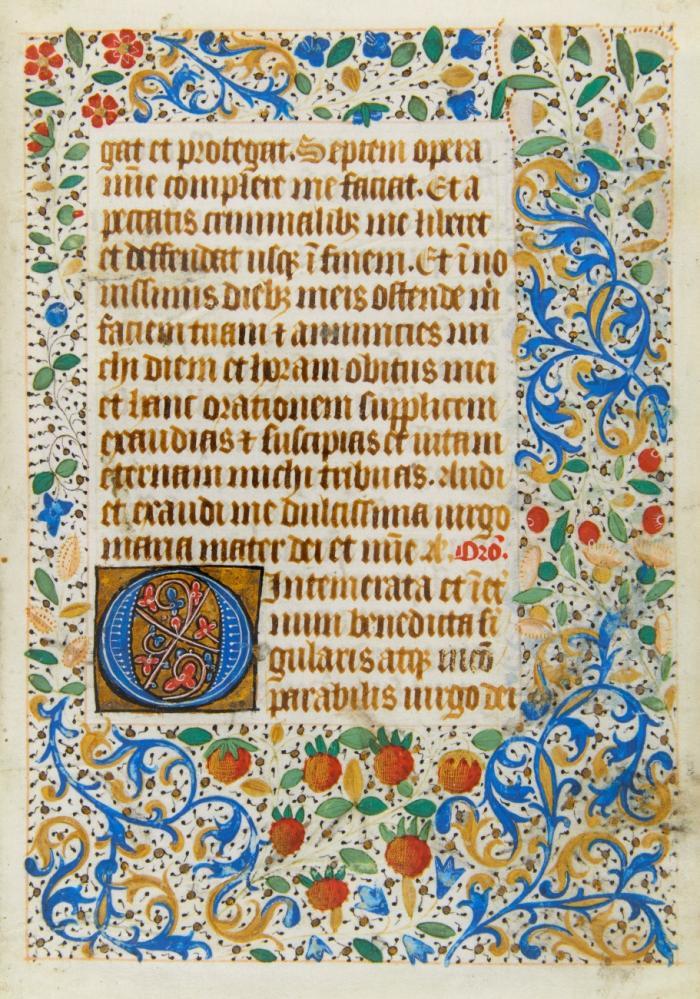 gat et protegat. Septem opera
mīe complere me faciat. Et a
peccatis criminalibꝫ me liberet
et deffendat usqꝫ ī finem. Et ī no
uissimis diebꝫ meis ostende m̄
faciem tuam ⁊ annuncies mi
chi diem et horam obitus mei
et hanc orationem supplicem
exaudias ⁊ suscipias et uitam
eternam michi tribuas. Audi
et exaudi me dulcissima uirgo
maria mater dei et mīe Orō.
O Intemerata et ī et
num benedicta si
gularis atqꝫ incō
parabilis uirgo dei